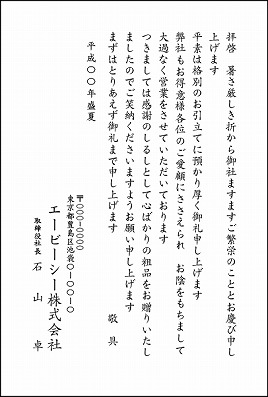 拝啓　暑さ厳しき折から御社ますますご繁栄のこととお慶び申し
上げます
平素は格別のお引立てに預かり厚く御礼申し上げます
弊社もお得意様各位のご愛顧にささえられ　お陰をもちまして
大過なく営業をさせていただいております
つきましては感謝のしるしとして心ばかりの粗品をお贈りいたし
ましたのでご笑納くださいますようお願い申し上げます
まずはとりあえず御礼まで申し上げます　　敬具
平成〇〇年盛夏
〒〇〇〇-〇〇〇〇
東京都豊島区池袋〇-〇〇-〇
エービーシー株式会社
取締役社長　石山　卓